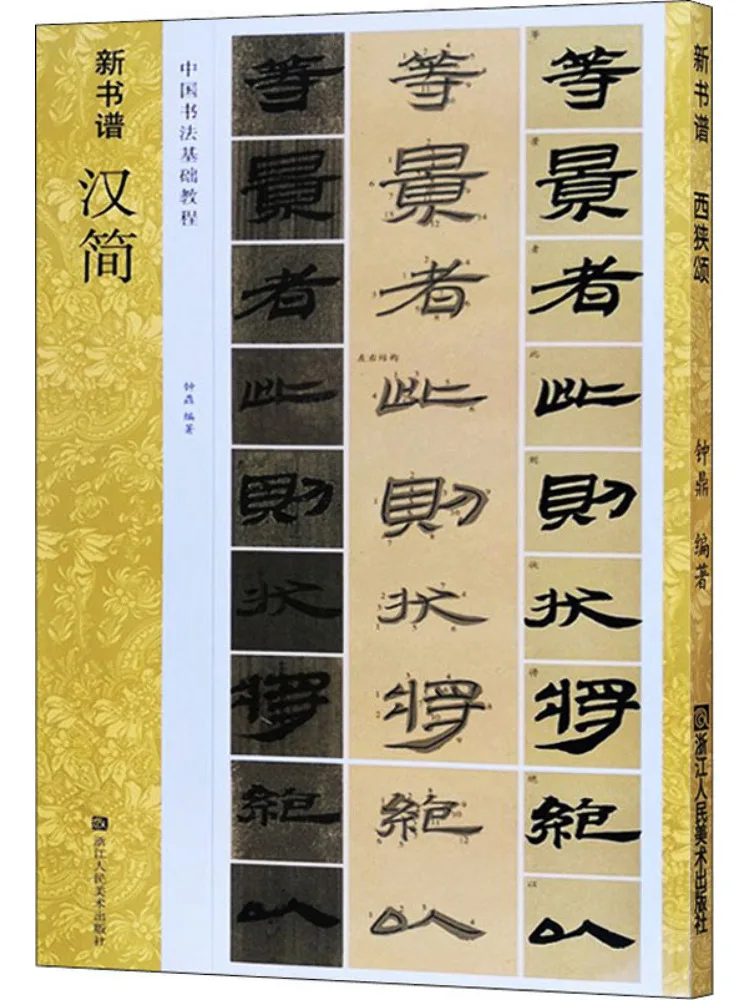 新书谱
汉简
浙江人民美术出版社
中国书法基础教程
钟鼎 编著
等
景
者
此
則
将
絶
以
等
景
者
左右结构
此
則
将
絶
以
等
景
者
此
則
将
絶
以
新书谱 西狭颂 钟鼎 编著 浙江人民美术出版社